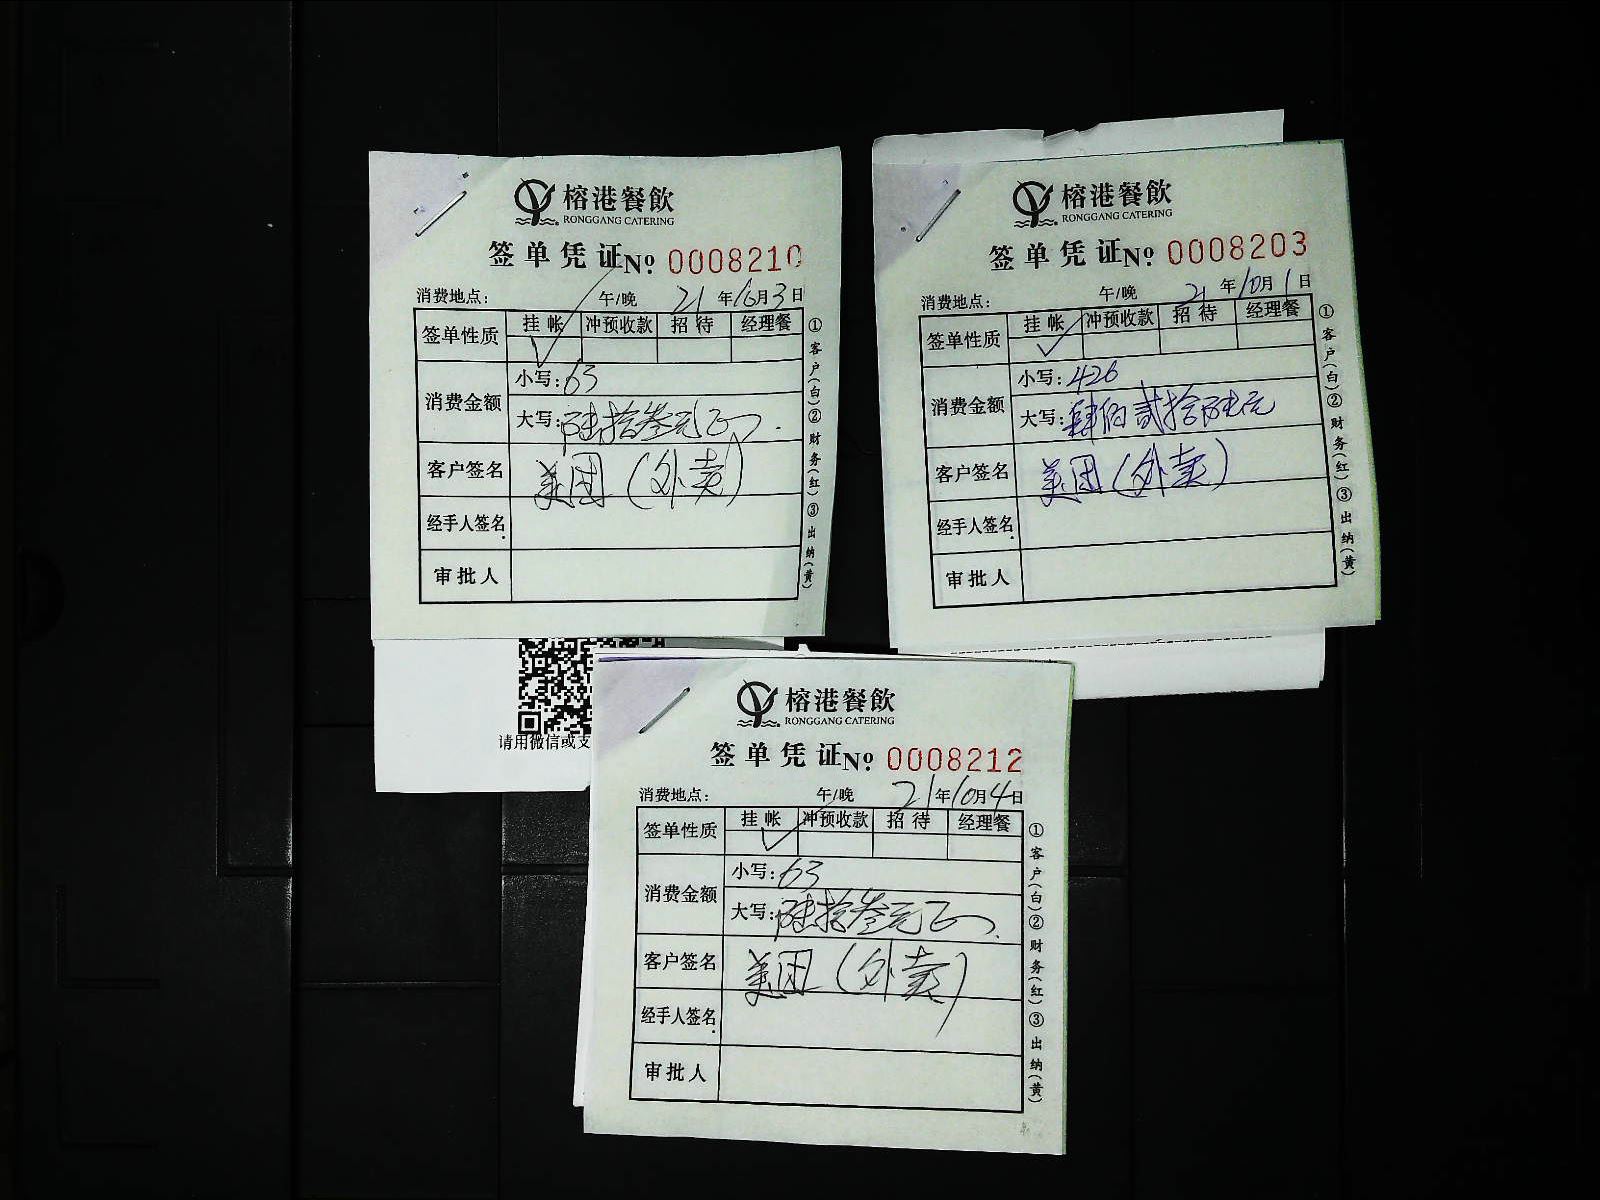 榕港餐飲
RONGGANG CATERING
签单凭证 No 0008210
消费地点： 午/晚 21年10月3日
签单性质 挂帐 冲预收款 招待 经理餐
✓
消费金额 小写：63
大写：陆拾叁元正
客户签名 美团（外卖）
经手人签名
审批人
①客户（白）②财务（红）③出纳（黄）
请用微信或支
榕港餐飲
RONGGANG CATERING
签单凭证 No 0008203
消费地点： 午/晚 21年10月1日
签单性质 挂帐 冲预收款 招待 经理餐
✓
消费金额 小写：426
大写：肆佰贰拾陆元
客户签名 美团（外卖）
经手人签名
审批人
①客户（白）②财务（红）③出纳（黄）
榕港餐飲
RONGGANG CATERING
签单凭证 No 0008212
消费地点： 午/晚 21年10月4日
签单性质 挂帐 冲预收款 招待 经理餐
✓
消费金额 小写：63
大写：陆拾叁元正
客户签名 美团（外卖）
经手人签名
审批人
①客户（白）②财务（红）③出纳（黄）